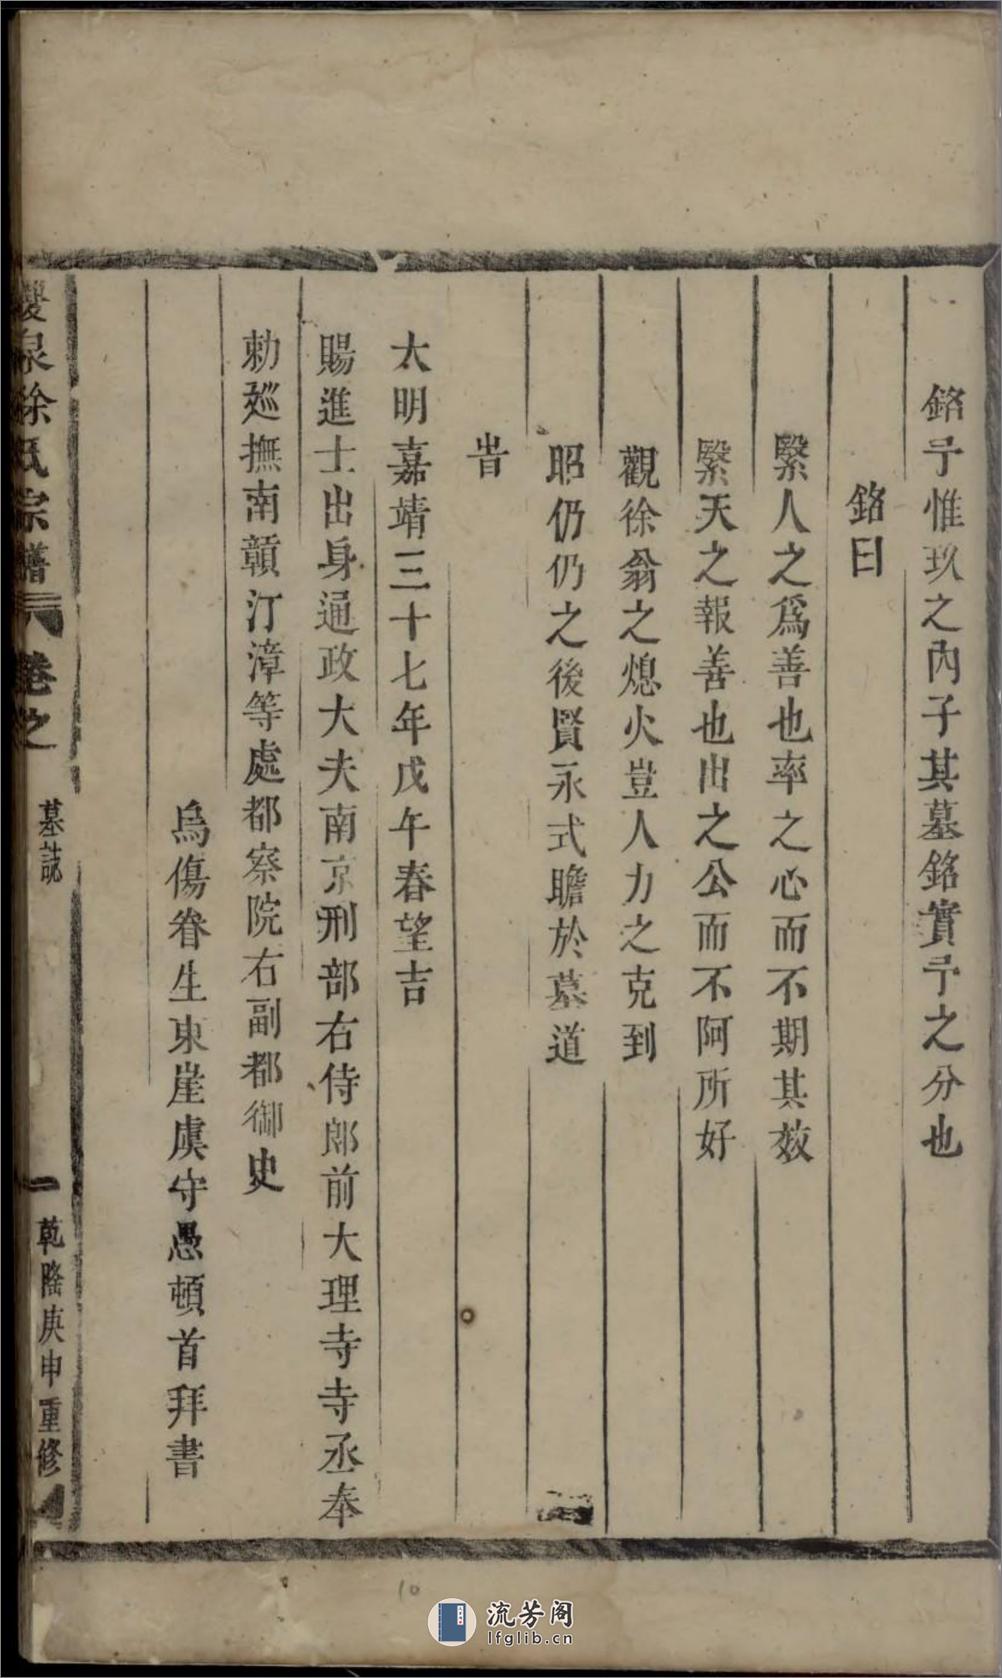 銘予惟玖之內子其墓銘實予之分也
銘曰
繄人之爲善也率之心而不期其效
繄天之報善也出之公而不阿所好
觀徐翁之熄火豈人力之克到
昭仍仍之後賢永式瞻於墓道
旹
大明嘉靖三十七年戊午春望吉
賜進士出身通政大夫南京刑部右侍郎前大理寺寺丞奉
勅廵撫南贛汀漳等處都察院右副都御史
烏傷眷生東崖虞守愚頓首拜書
雙泉徐氏宗譜 卷之 墓誌 一 乾隆庚申重修
10
流芳阁
lfglib.cn